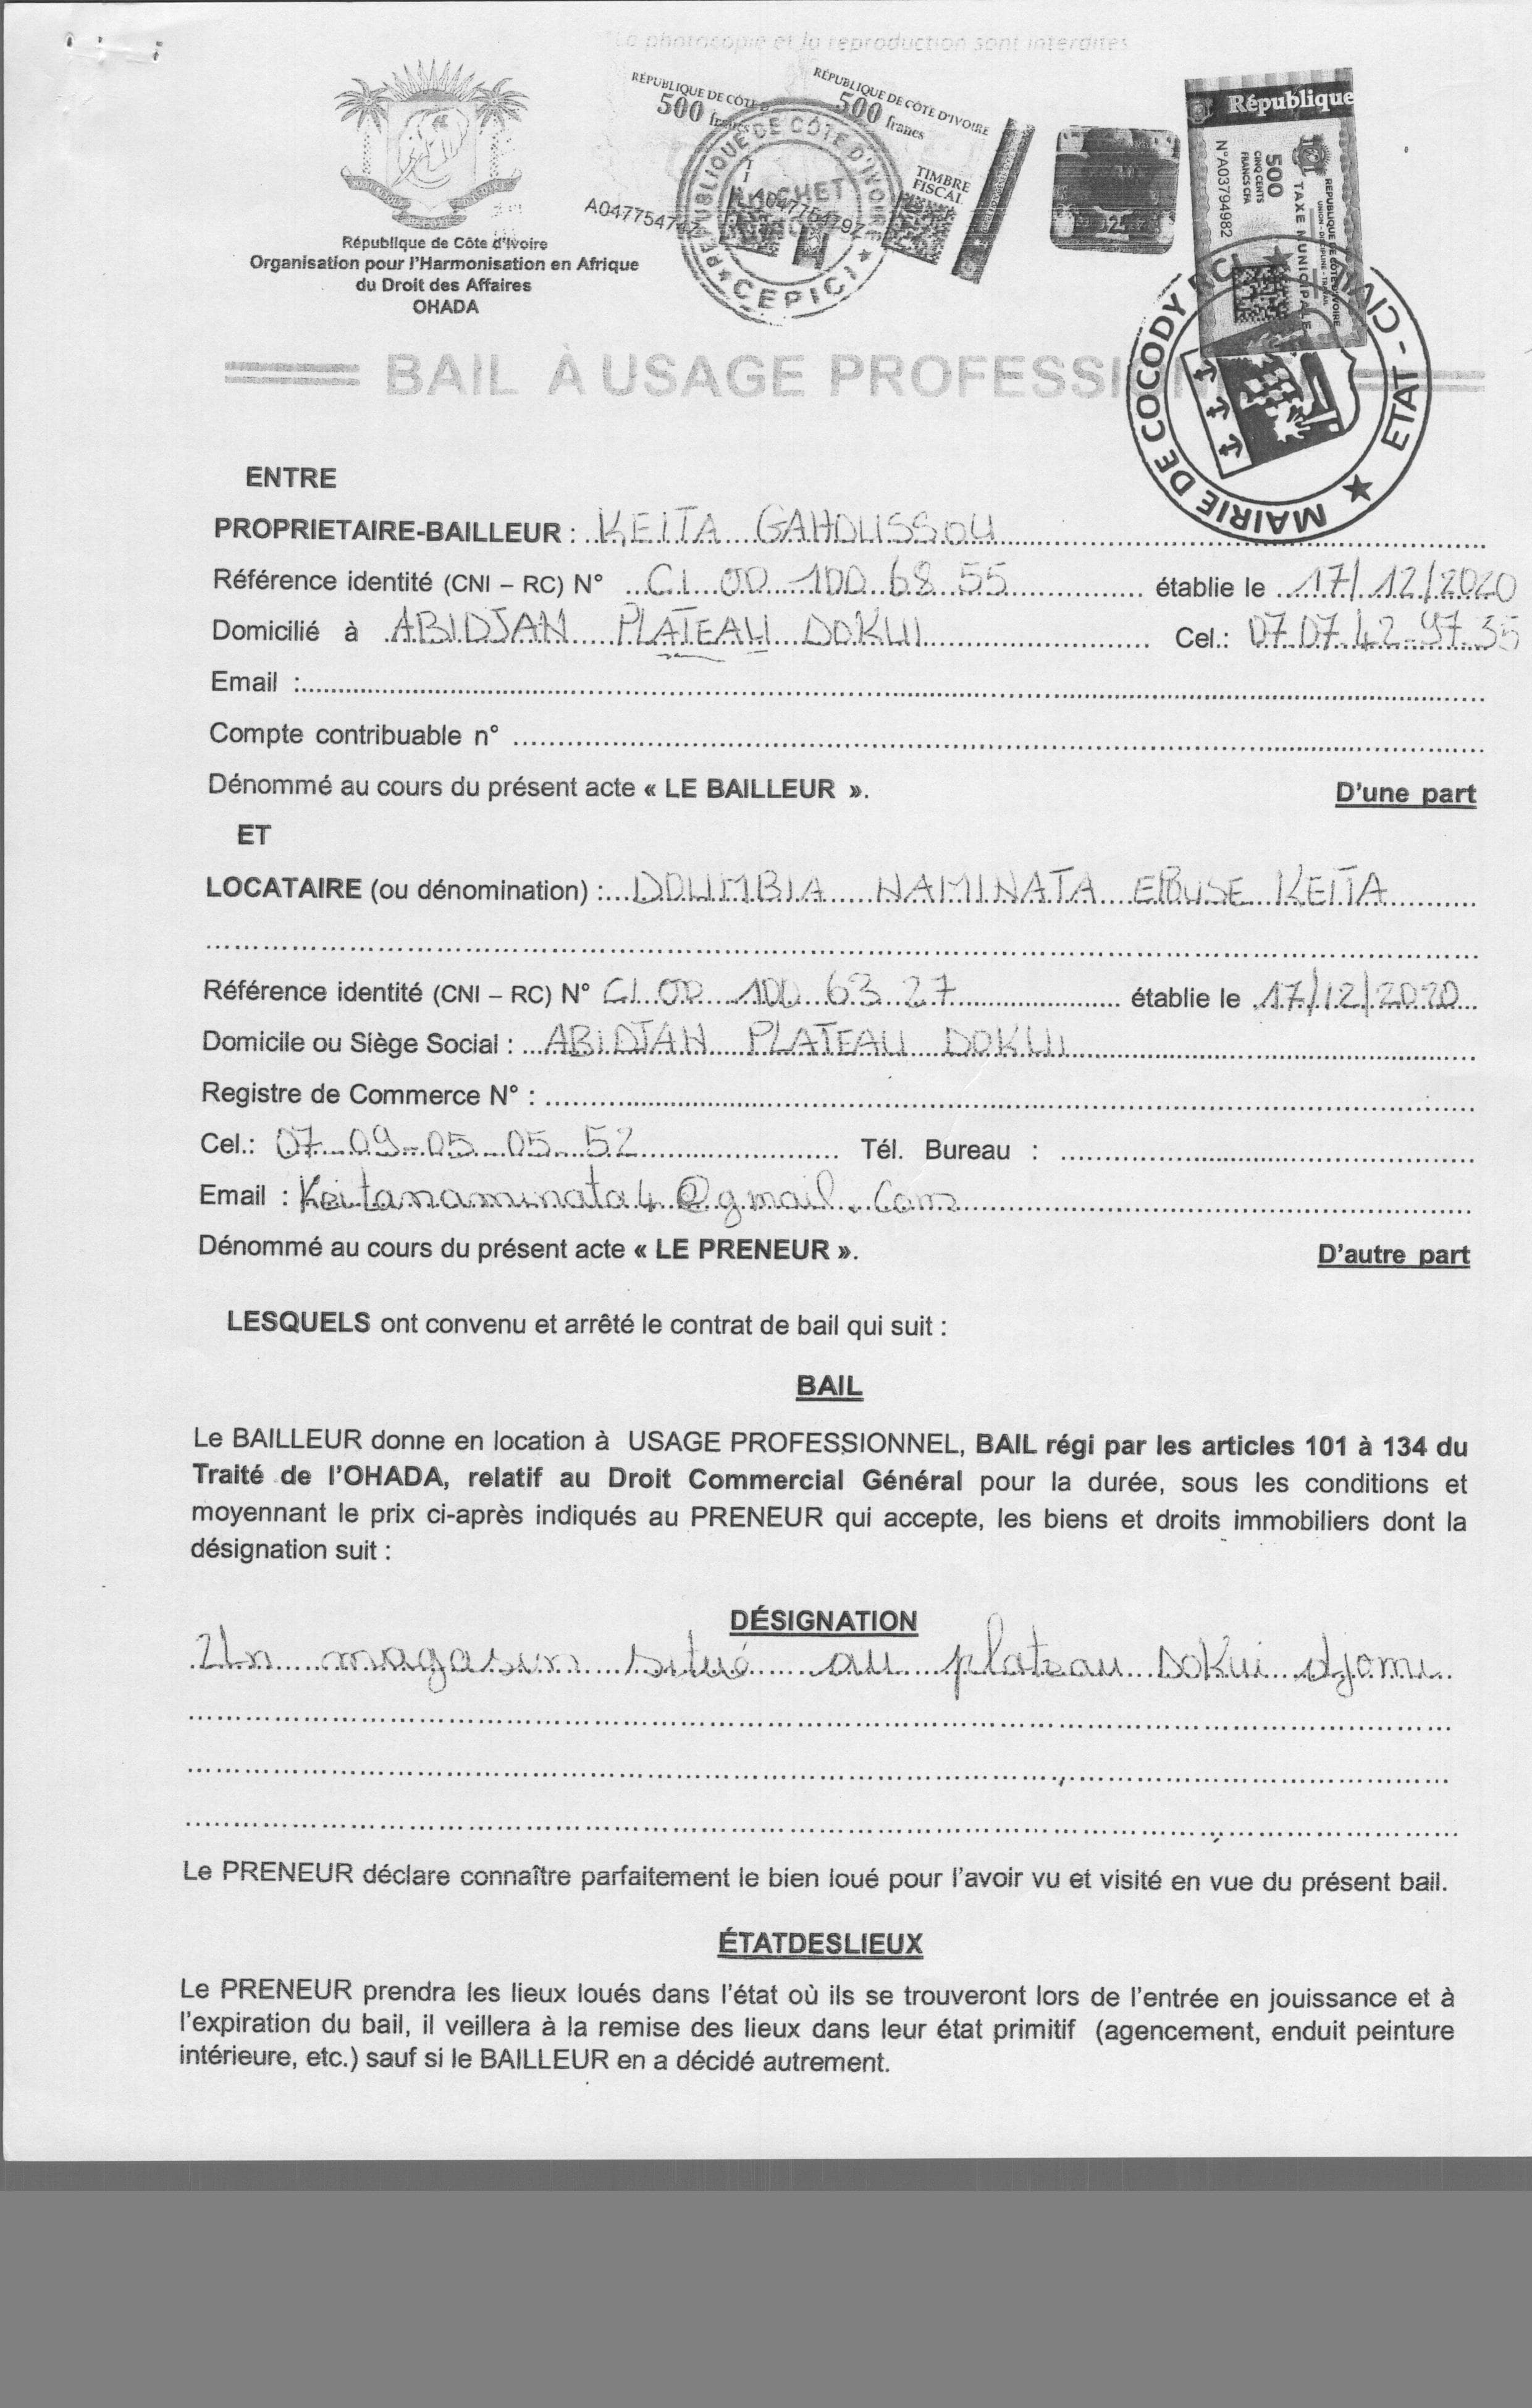 La photocopie et la reproduction sont interdites
RÉPUBLIQUE DE CÔTE D'IVOIRE
500 francs
500 francs
TIMBRE FISCAL
A047754747
A047754797
RÉPUBLIQUE DE CÔTE D'IVOIRE
GUICHET
CEPICI
République
REPUBLIQUE DE CÔTE D'IVOIRE
UNION - DISCIPLINE - TRAVAIL
TAXE MUNICIPALE
500
CINQ CENTS
FRANCS CFA
N°A03794982
MAIRIE DE COCODY RCI ★ ETAT - CIVIL ★
République de Côte d'Ivoire
Organisation pour l'Harmonisation en Afrique
du Droit des Affaires
OHADA
BAIL À USAGE PROFESSI
ENTRE
PROPRIETAIRE-BAILLEUR : KEITA GAHOUSSOU
Référence identité (CNI – RC) N° CI 00 100 68 55 établie le 17/12/2020
Domicilié à ABIDJAN PLATEAU DOKUI Cel.: 07 07 42 97 35
Email :
Compte contribuable n°
Dénommé au cours du présent acte « LE BAILLEUR ». D'une part
ET
LOCATAIRE (ou dénomination) : DOUMBIA NAMINATA EPOUSE KEITA
Référence identité (CNI – RC) N° CI 00 100 63 27 établie le 17/12/2020
Domicile ou Siège Social : ABIDJAN PLATEAU DOKUI
Registre de Commerce N° :
Cel.: 07 09 05 05 52 Tél. Bureau :
Email : Keitanaminata4@gmail.com
Dénommé au cours du présent acte « LE PRENEUR ». D'autre part
LESQUELS ont convenu et arrêté le contrat de bail qui suit :
BAIL
Le BAILLEUR donne en location à USAGE PROFESSIONNEL, BAIL régi par les articles 101 à 134 du
Traité de l'OHADA, relatif au Droit Commercial Général pour la durée, sous les conditions et
moyennant le prix ci-après indiqués au PRENEUR qui accepte, les biens et droits immobiliers dont la
désignation suit :
DÉSIGNATION
Un magasin situé au plateau Dokui djomi
Le PRENEUR déclare connaître parfaitement le bien loué pour l'avoir vu et visité en vue du présent bail.
ÉTATDESLIEUX
Le PRENEUR prendra les lieux loués dans l'état où ils se trouveront lors de l'entrée en jouissance et à
l'expiration du bail, il veillera à la remise des lieux dans leur état primitif (agencement, enduit peinture
intérieure, etc.) sauf si le BAILLEUR en a décidé autrement.